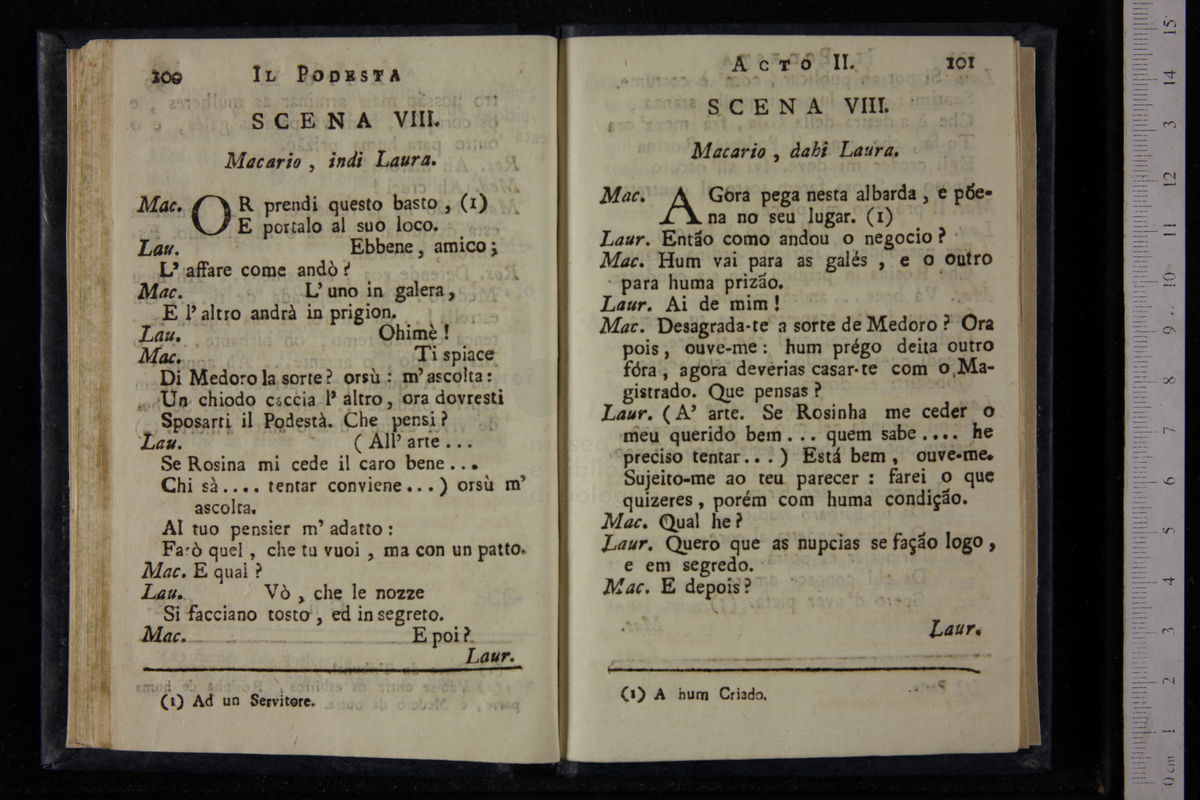 100 IL PODESTA
SCENA VIII.
Macario , indi Laura.
Mac. OR prendi questo basto , (1)
E portalo al suo loco.
Lau. Ebbene, amico;
L' affare come andò?
Mac. L' uno in galera,
E l' altro andrà in prigion.
Lau. Ohimè!
Mac. Ti spiace
Di Medoro la sorte? orsù : m' ascolta:
Un chiodo caccia l' altro, ora dovresti
Sposarti il Podestà. Che pensi?
Lau. ( All' arte ...
Se Rosina mi cede il caro bene ...
Chi sà .... tentar conviene ...) orsù m'
ascolta.
Al tuo pensier m' adatto :
Farò quel , che tu vuoi , ma con un patto.
Mac. E qual ?
Lau. Vò , che le nozze
Si facciano tosto , ed in segreto.
Mac. E poi?
Laur.
(1) Ad un Servitore.
ACTO II. 101
SCENA VIII.
Macario , dahi Laura.
Mac. AGora pega nesta albarda , e põe-
na no seu lugar. (1)
Laur. Então como andou o negocio ?
Mac. Hum vai para as galés , e o outro
para huma prizão.
Laur. Ai de mim !
Mac. Desagrada-te a sorte de Medoro ? Ora
pois , ouve-me : hum prégo deita outro
fóra , agora deverias casar-te com o Ma-
gistrado. Que pensas ?
Laur. ( A' arte. Se Rosinha me ceder o
meu querido bem ... quem sabe .... he
preciso tentar ... ) Está bem , ouve-me.
Sujeito-me ao teu parecer : farei o que
quizeres , porém com huma condição.
Mac. Qual he ?
Laur. Quero que as nupcias se fação logo ,
e em segredo.
Mac. E depois ?
Laur.
(1) A hum Criado.